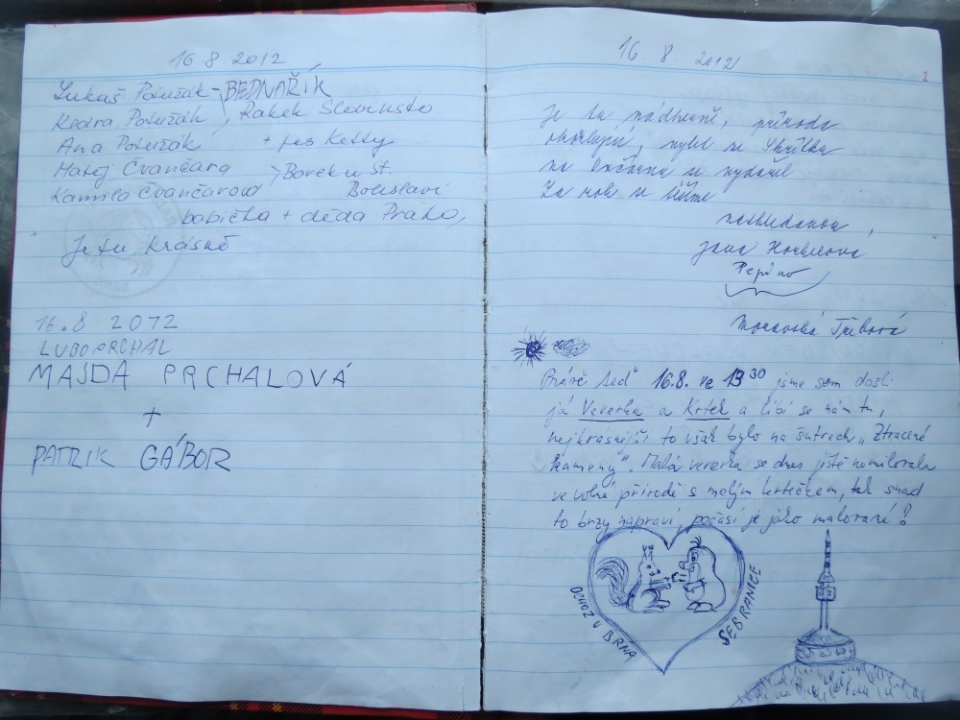 16 8 2012
Lukáš Potužák - BEDNAŘÍK
Kedra Potužák, Rakek Slovinsko
Ana Potužák + pes Ketty
Matěj Čvančara
Kamila Čvančarová, Borek u St. Boleslavi
babička + děda Praha,
Je tu krásně
16.8 2012
LUBO PRCHAL
MAJDA PRCHALOVÁ
+
PATRIK GÁBOR
16. 8. 2012
2
Je tu nádherně, příroda
okouzlující,
na
Za rok se těšíme
nashledanou,
Jana
Pepino
Moravská Třebová
Právě teď 16.8. ve 13 30 jsme sem došli
já Veverka a Krtek a líbí se nám tu,
nejkrásnější to však bylo na šutrech „Ztracené
kameny". Malá veverka se dnes ještě nemilovala
ve volné přírodě s malým krtečkem, tak snad
to brzy napraví, počasí je jako malované!
OCHOZ U BRNA
SEBRANICE